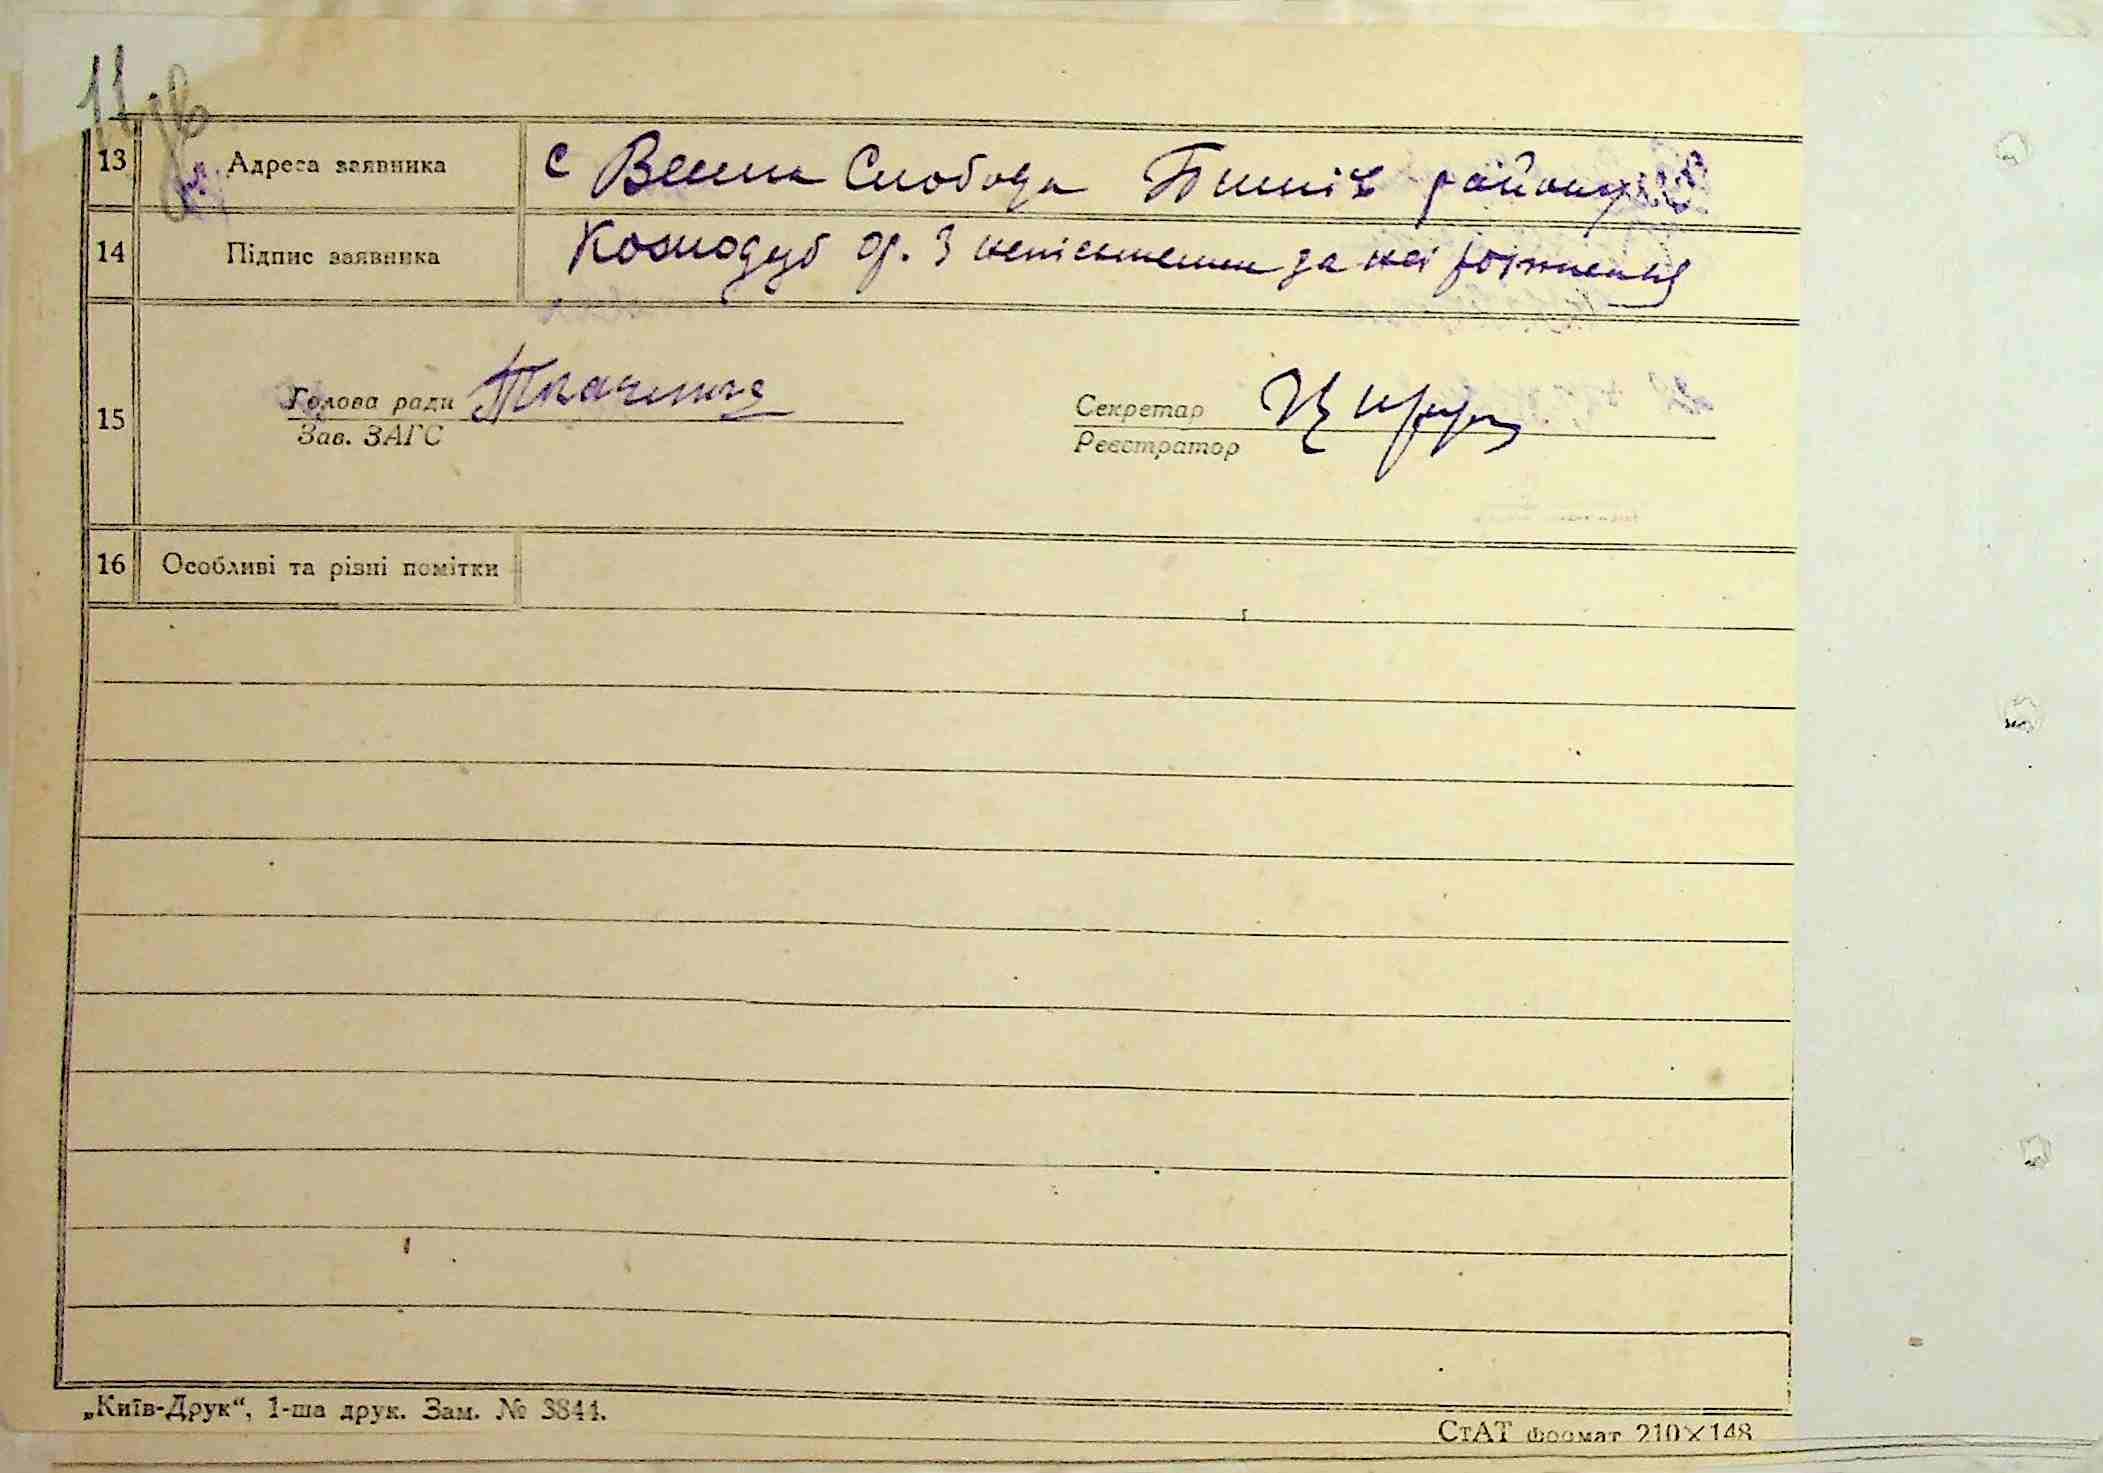 11 зв
13 Адреса заявника с Велика Слобода район
14 Підпис заявника гр. З неписьменна за неї
15 Голова ради Ткаченко Секретар
Зав. ЗАГС Реєстратор
16 Особливі та різні помітки
„Київ-Друк“, 1-ша друк. Зам. № 3844.
СтАТ формат 210×148